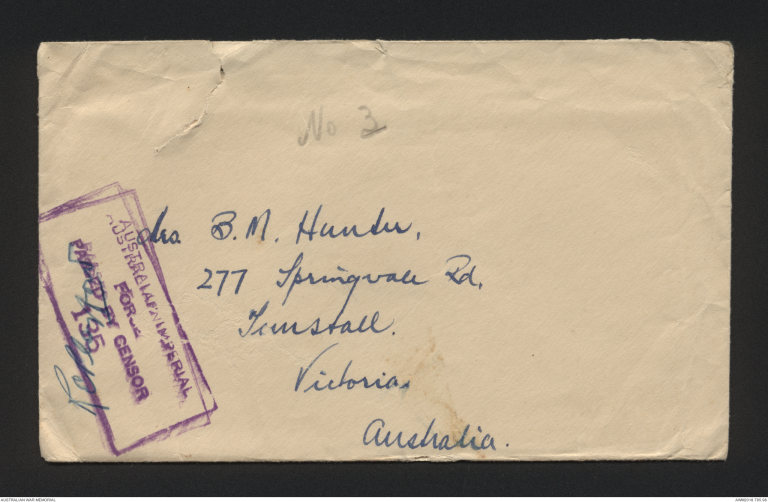 No 3
Mrs. B. M. Hunter,
277 Springvale Rd.
Tunstall.
Victoria.
Australia.
AUSTRALIAN IMPERIAL
FORCE
PASSED BY CENSOR
135
AUSTRALIAN WAR MEMORIAL